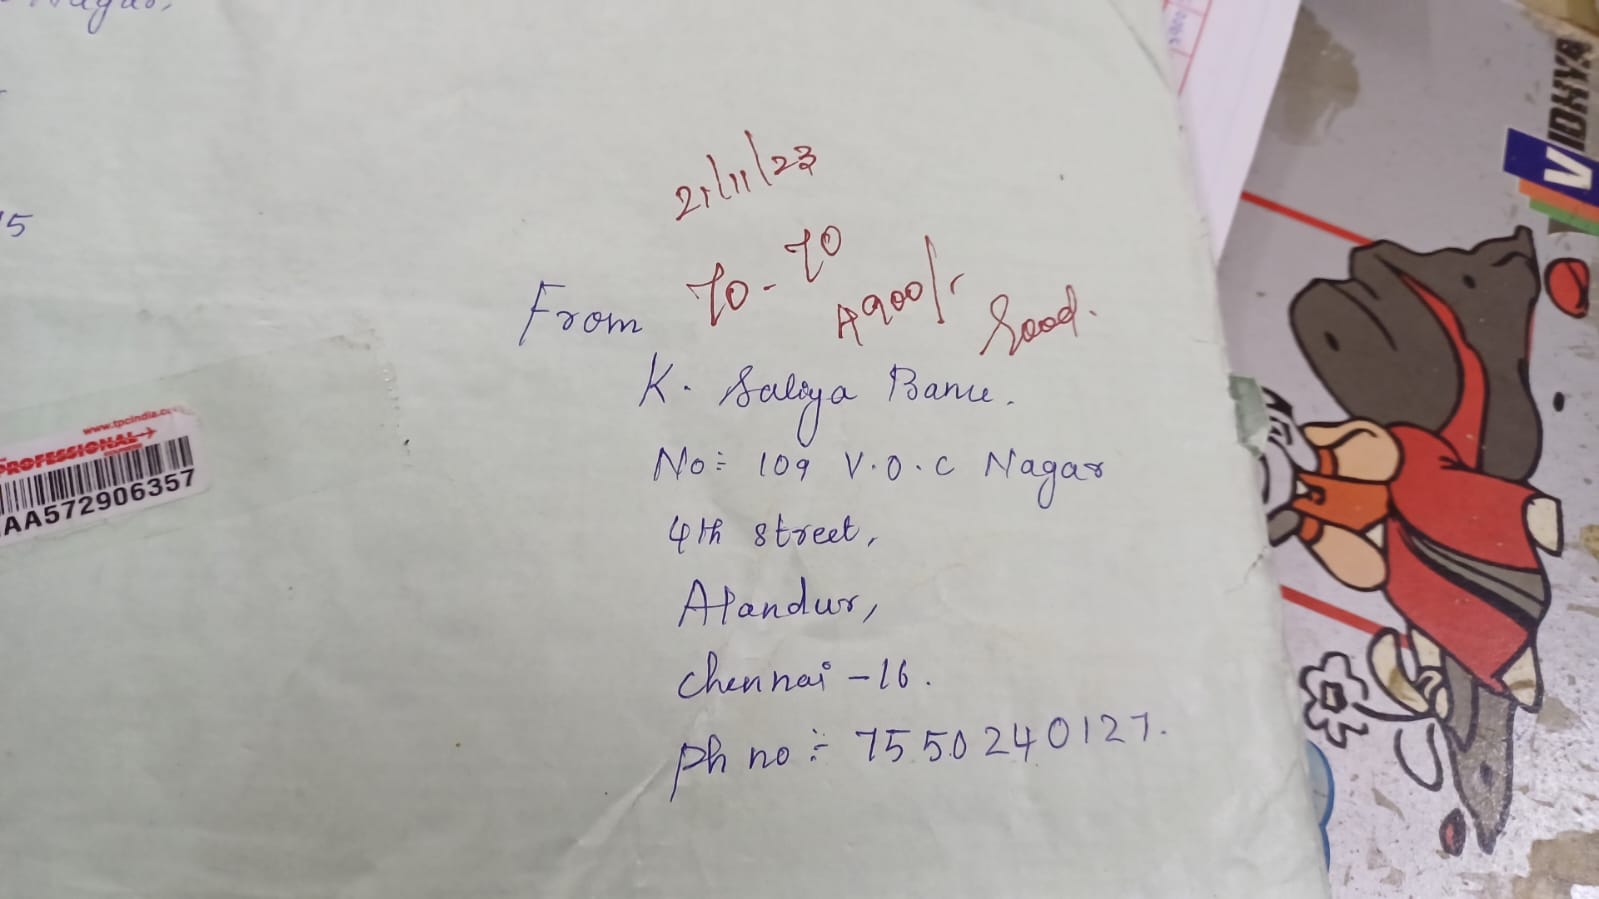 Nagar,
15
21/11/23
70-70
4900/-
Good.
From
K. Saliya Banu.
No:- 109 V.O.C Nagar
4th street,
Alandur,
Chennai -16.
Ph no :- 7550240127.
www.tpcindia.co
PROFESSIONAL
AA572906357
VIDHYA